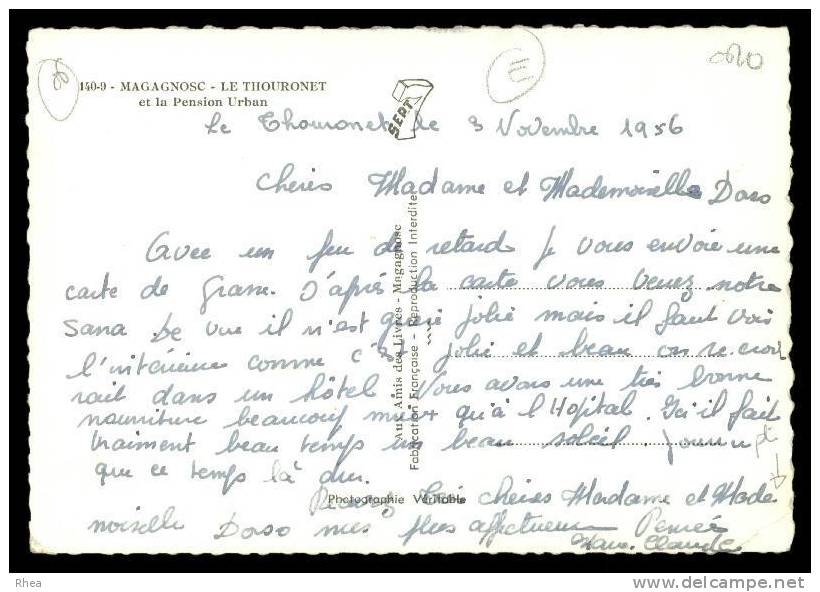 140-9 - MAGAGNOSC - LE THOURONET
et la Pension Urban
SEPT 7
Le Thouronet le 3 Novembre 1956
Chères Madame et Mademoiselle Dorso
Avec un peu de retard Je vous envoie une
carte de Grasse. D'après la carte vous venez notre
Sana De vue il n'est guère jolie mais il faut voir
l'intérieur comme c'est jolie et beau on se croi
rait dans un hôtel Nous avons une très bonne
nourriture beaucoup mieux qu'à l'Hopital. Ici il fait
vraiment beau temps un beau soleil. pourvu
que ce temps là dur.
Recevez chères Madame et Made
moiselle Dorso mes plus affectueuse Pensée
Claude
Aux Amis des Livres - Magagnosc
Fabrication Française - Reproduction Interdite
Photographie Véritable
Rhea
delcampe.net